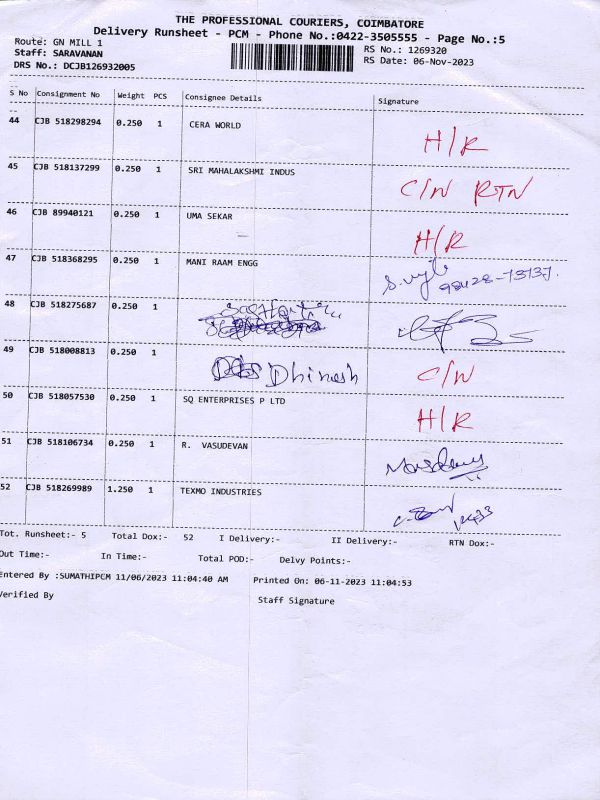 THE PROFESSIONAL COURIERS, COIMBATORE
Delivery Runsheet - PCM - Phone No.:0422-3505555 - Page No.:5
Route: GN MILL 1
RS No.: 1269320
Staff: SARAVANAN
RS Date: 06-Nov-2023
DRS No.: DCJB126932005
S No Consignment No Weight PCS Consignee Details Signature
44 CJB 518298294 0.250 1 CERA WORLD H/R
45 CJB 518137299 0.250 1 SRI MAHALAKSHMI INDUS C/N RTN
46 CJB 89940121 0.250 1 UMA SEKAR H/R
47 CJB 518368295 0.250 1 MANI RAAM ENGG
48 CJB 518275687 0.250 1
49 CJB 518008813 0.250 1 Dhinesh C/N
50 CJB 518057530 0.250 1 SQ ENTERPRISES P LTD H/R
51 CJB 518106734 0.250 1 R. VASUDEVAN
52 CJB 518269989 1.250 1 TEXMO INDUSTRIES
Tot. Runsheet:- 5 Total Dox:- 52 I Delivery:- II Delivery:- RTN Dox:-
Out Time:- In Time:- Total POD:- Delvy Points:-
Entered By :SUMATHIPCM 11/06/2023 11:04:40 AM Printed On: 06-11-2023 11:04:53
Verified By Staff Signature